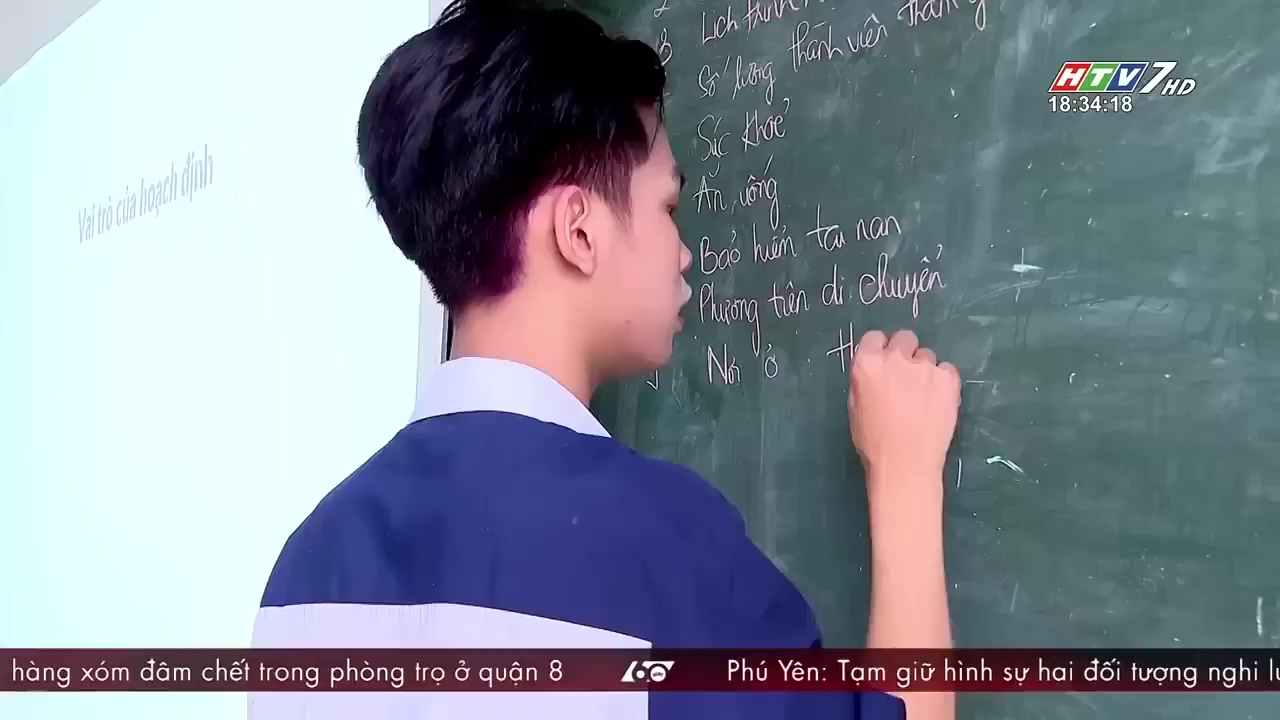 HTV7 HD
18:34:18
Vai trò của hoạch định
2 Lịch trình
3 Số lượng thành viên tham g
Sức khoẻ
Ăn, uống
Bảo hiểm tai nạn
Phương tiện di chuyển
Nơi ở
hàng xóm đâm chết trong phòng trọ ở quận 8
60
Phú Yên: Tạm giữ hình sự hai đối tượng nghi